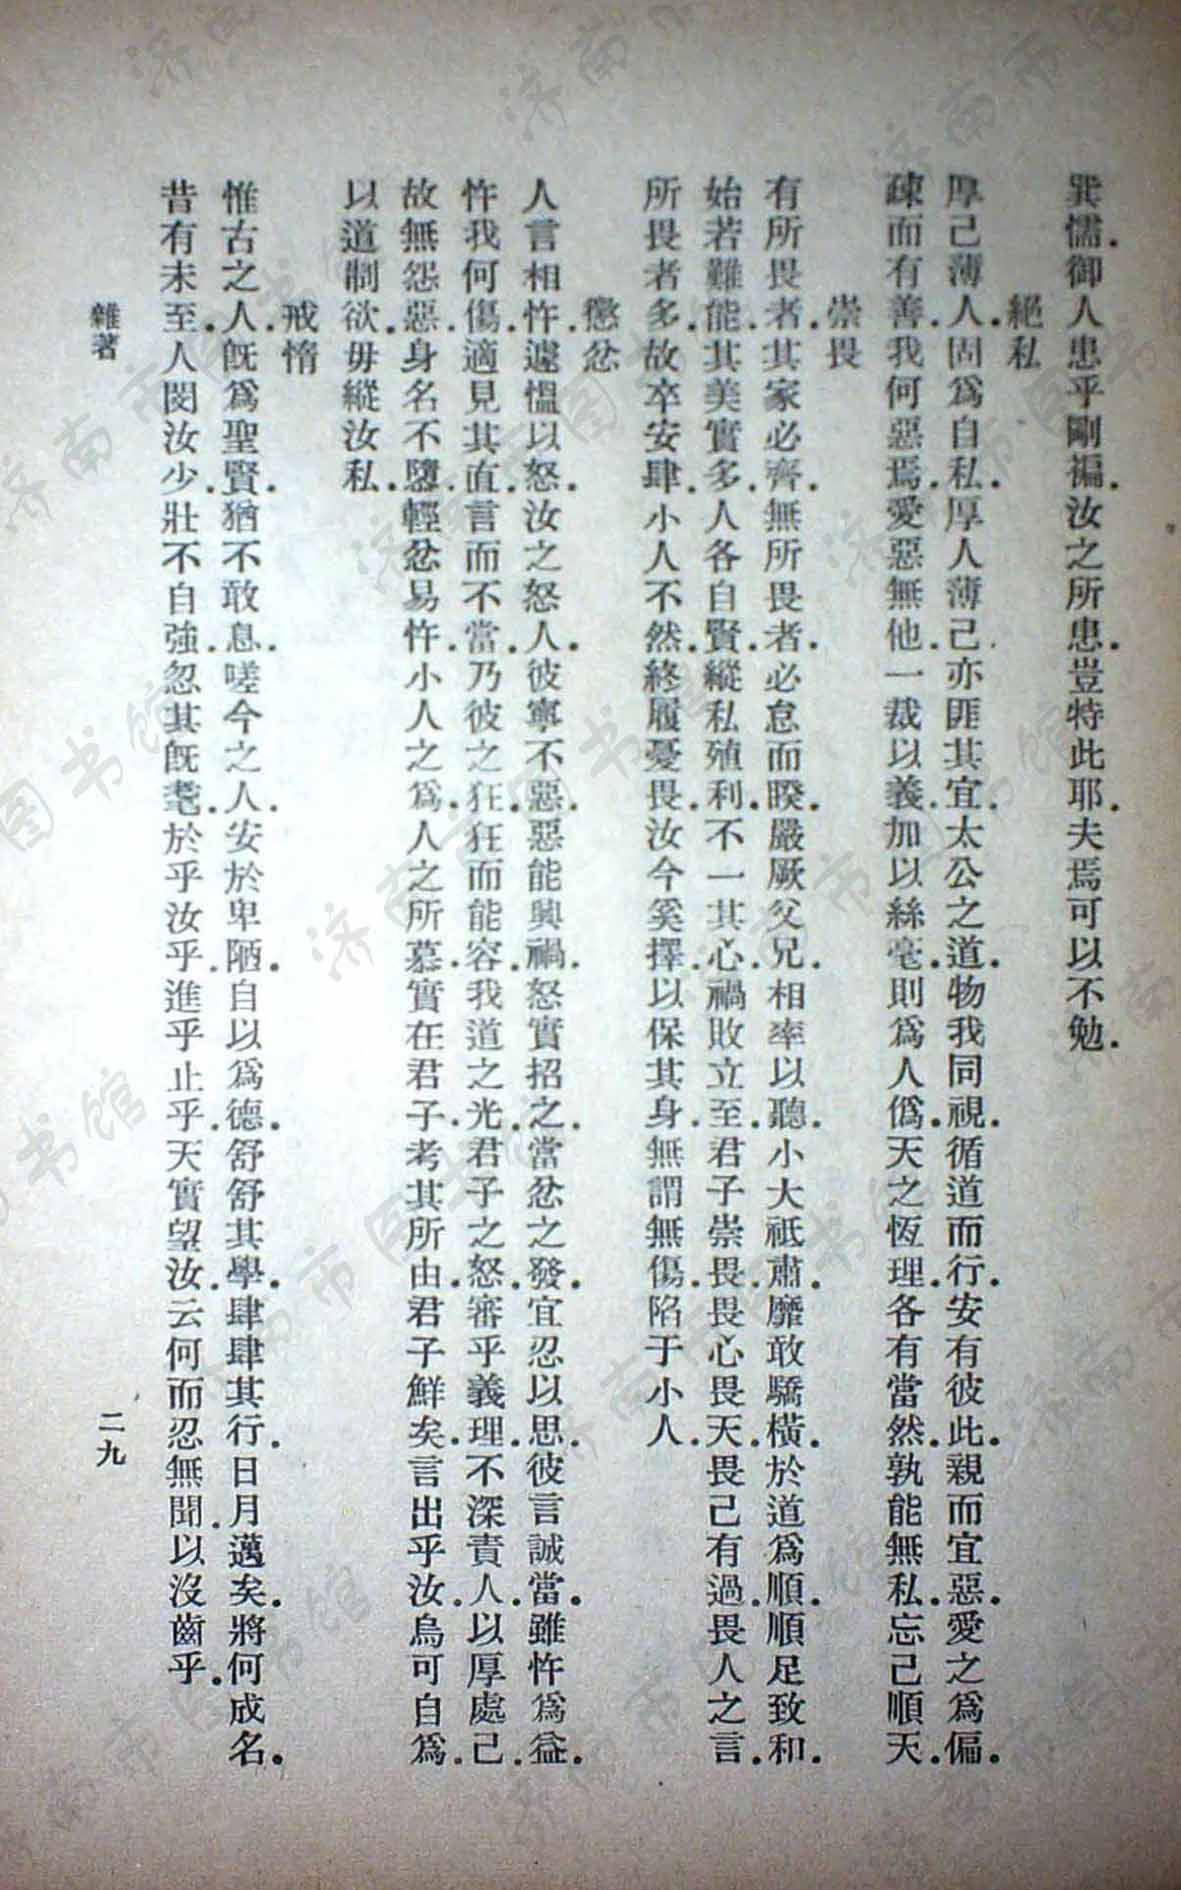 巽懦.御人患乎剛褊.汝之所患.豈特此耶.夫焉可以不勉.
絕私
厚己薄人.固爲自私.厚人薄己.亦匪其宜.太公之道.物我同視.循道而行.安有彼此.親而宜惡.愛之爲偏.
疎而有善.我何惡焉.愛惡無他.一裁以義.加以絲毫.則爲人僞.天之恆理.各有當然.孰能無私.忘己順天.
崇畏
有所畏者.其家必齊.無所畏者.必怠而睽.嚴厥父兄.相率以聽.小大祗肅.靡敢驕橫.於道爲順.順足致和.
始若難能.其美實多.人各自賢.縱私殖利.不一其心.禍敗立至.君子崇畏.畏心畏天.畏己有過.畏人之言.
所畏者多.故卒安肆.小人不然.終履憂畏.汝今奚擇.以保其身.無謂無傷.陷于小人.
懲忿
人言相忤.遽愠以怒.汝之怒人.彼寧不惡.惡能興禍.怒實招之.當忿之發.宜忍以思.彼言誠當.雖忤爲益.
忤我何傷.適見其直.言而不當.乃彼之狂.狂而能容.我道之光.君子之怒.審乎義理.不深責人.以厚處己.
故無怨惡.身名不隳.輕忿易忤.小人之爲.人之所慕.實在君子.考其所由.君子鮮矣.言出乎汝.烏可自爲.
以道制欲.毋縱汝私.
戒惰
惟古之人.旣爲聖賢.猶不敢息.嗟今之人.安於卑陋.自以爲德.舒舒其學.肆肆其行.日月邁矣.將何成名.
昔有未至.人閔汝少.壯不自強.忽其旣耄.於乎汝乎.進乎止乎.天實望汝.云何而忍無聞.以沒齒乎.
雜著
二九
济南市图书馆